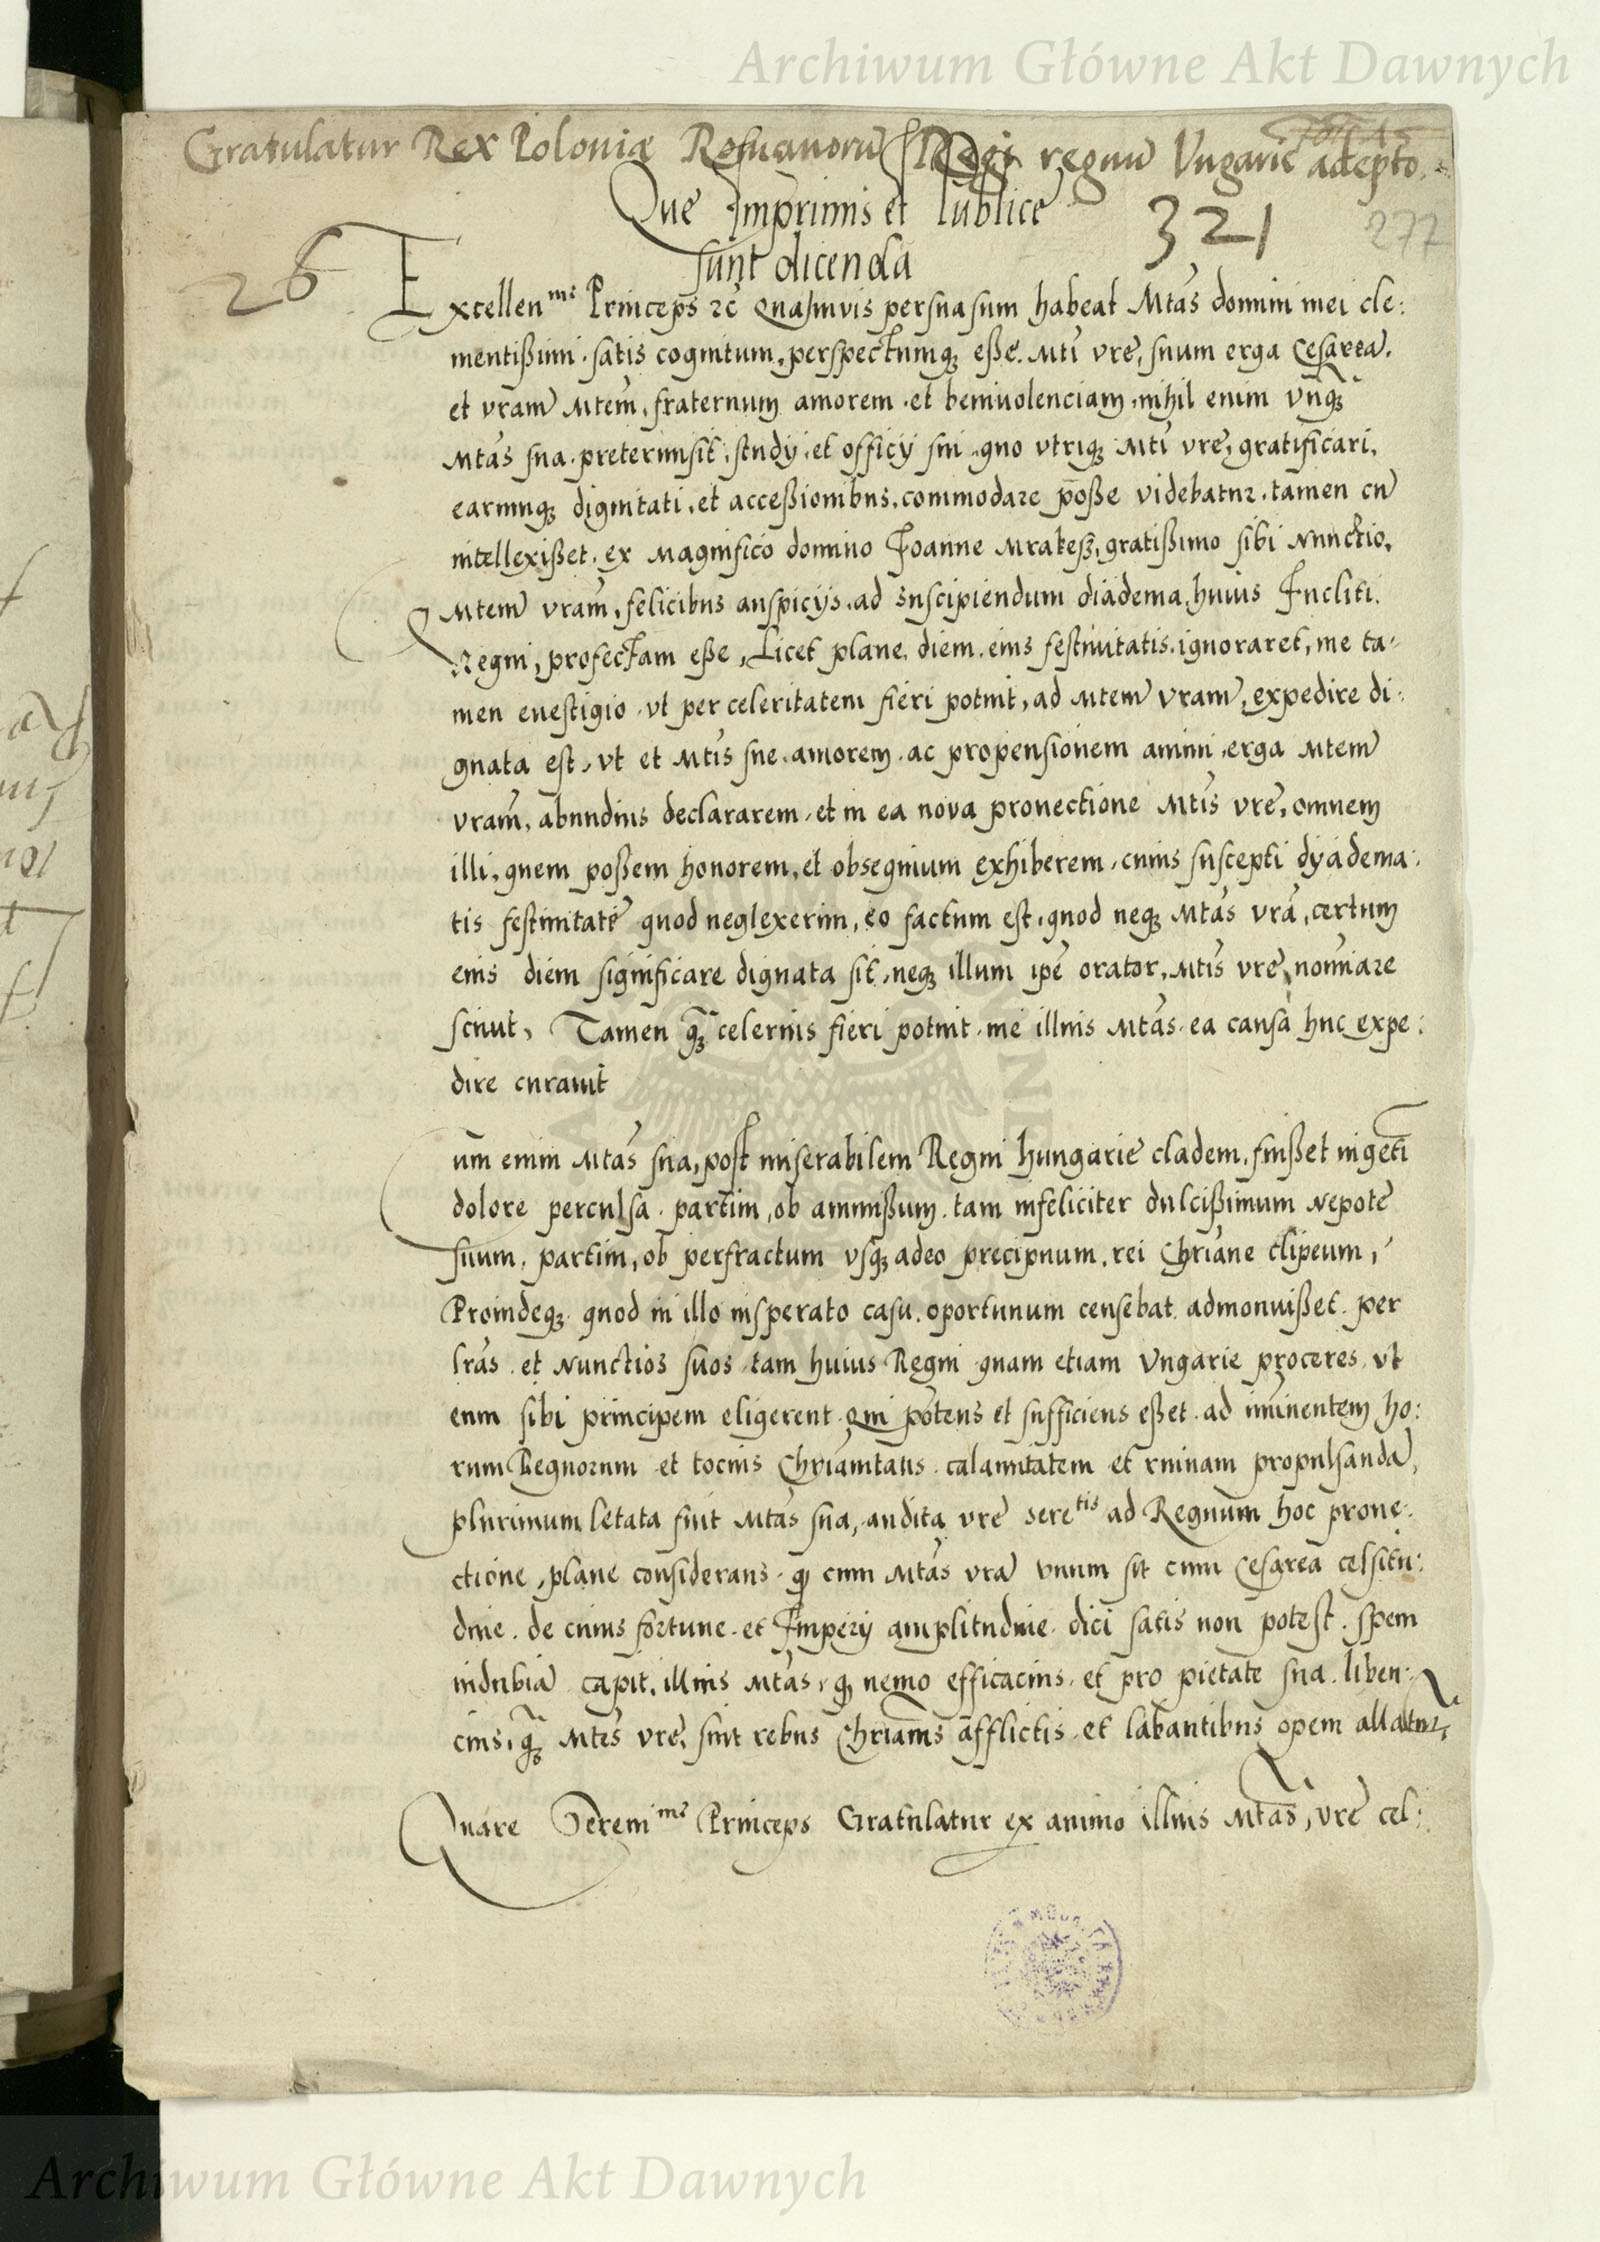 Archiwum Główne Akt Dawnych
Gratulatur Rex Poloniæ Romanorũ Regi regnũ Vngarie adepto.
Que Imprimis et Publice
sunt dicenda
321
277
26
Excellen^me Princeps ꝛc̃ Quamvis persuasum habeat Mtãs domini mei cle:
mentißimi. satis cognitum, perspectumqꝫ eße. Mtĩ vrẽ, suum erga Cesareã.
et vram̃ Mtem̃, fraternum amorem. et beniuolenciam, nihil enim vnqꝫ̃
Mtãs sua. pretermisit, studij, et officij sui, quo vtriqꝫ Mtĩ vrẽ, gratificari,
earumqꝫ dignitati, et acceßionibus, commodare poße videbatur. tamen cũ
intellexißet. ex Magnifico domino Joanne Mrakeß, gratißimo sibi Nunctio,
Mtem̃ vram̃, felicibus auspicijs. ad suscipiendum diadema, huius Incliti.
Regni, profectam eße, Licet plane, diem. eius festiuitatis. ignoraret, me ta-
men euestigio. vt per celeritatem fieri potuit, ad Mtem̃ vram̃, expedire di:
gnata est, vt et Mtĩs sue. amorem. ac propensionem animi, erga Mtem̃
vram̃, abundius declararem, et in ea nova prouectione Mtĩs vrẽ, omnem
illi, quem poßem honorem, et obsequium exhiberem, cuius suscepti dyadema:
tis festiuitatẽ quod neglexerim, eo factum est, quod neqꝫ Mtãs vrã, certum
eius diem significare dignata sit, neqꝫ illum ipẽ orator, Mtĩs vrẽ, nom̃iare
sciuit, Tamen qꝫ̃ celerius fieri potuit. me illius Mtãs. ea causa huc expe:
dire curauit
Cum enim Mtãs sua, post miserabilem Regni Hungarie cladem, fuißet ingẽti
dolore perculsa. partim, ob ammißum. tam infeliciter dulcißimum Nepotẽ
suum, partim, ob perfractum vsqꝫ adeo precipuum. rei Chriãne clipeum,
Proindeqꝫ quod in illo insperato casu. oportunum censebat, admonuißet. per
lrãs. et Nunctios suos. tam huius Regni quam etiam Vngarie proceres, vt
eum sibi principem eligerent. qui potens et sufficiens eßet. ad im̃inentem ho:
rum Regnorum et tocius Chriãnitatis. calamitatem et ruinam propulsandã,
plurimum letata fuit Mtãs sua, audita vrẽ Sere^tis ad Regnum hoc proue:
ctione, plane considerans. qꝫ cum Mtãs vrã vnum sit cum Cesarea celsitu:
dine. de cuius fortune. et Imperij amplitudine. dici satis non potest. spem
indubiã capit, illius Mtãs, qꝫ nemo efficacius. et pro pietate sua. liben:
cius, qꝫ̃ Mtãs vrẽ, sint rebus Chriãnis afflictis. et labantibus opem allatur,
Quare Sereni^me Princeps Gratulatur ex animo illius Mtãs, vrẽ cel:
Archiwum Główne Akt Dawnych